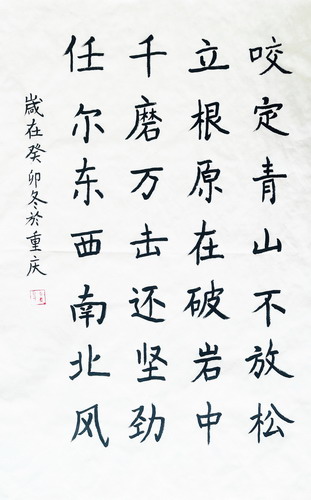 咬定青山不放松
立根原在破岩中
千磨万击还坚劲
任尔东西南北风
歲在癸卯冬於重庆